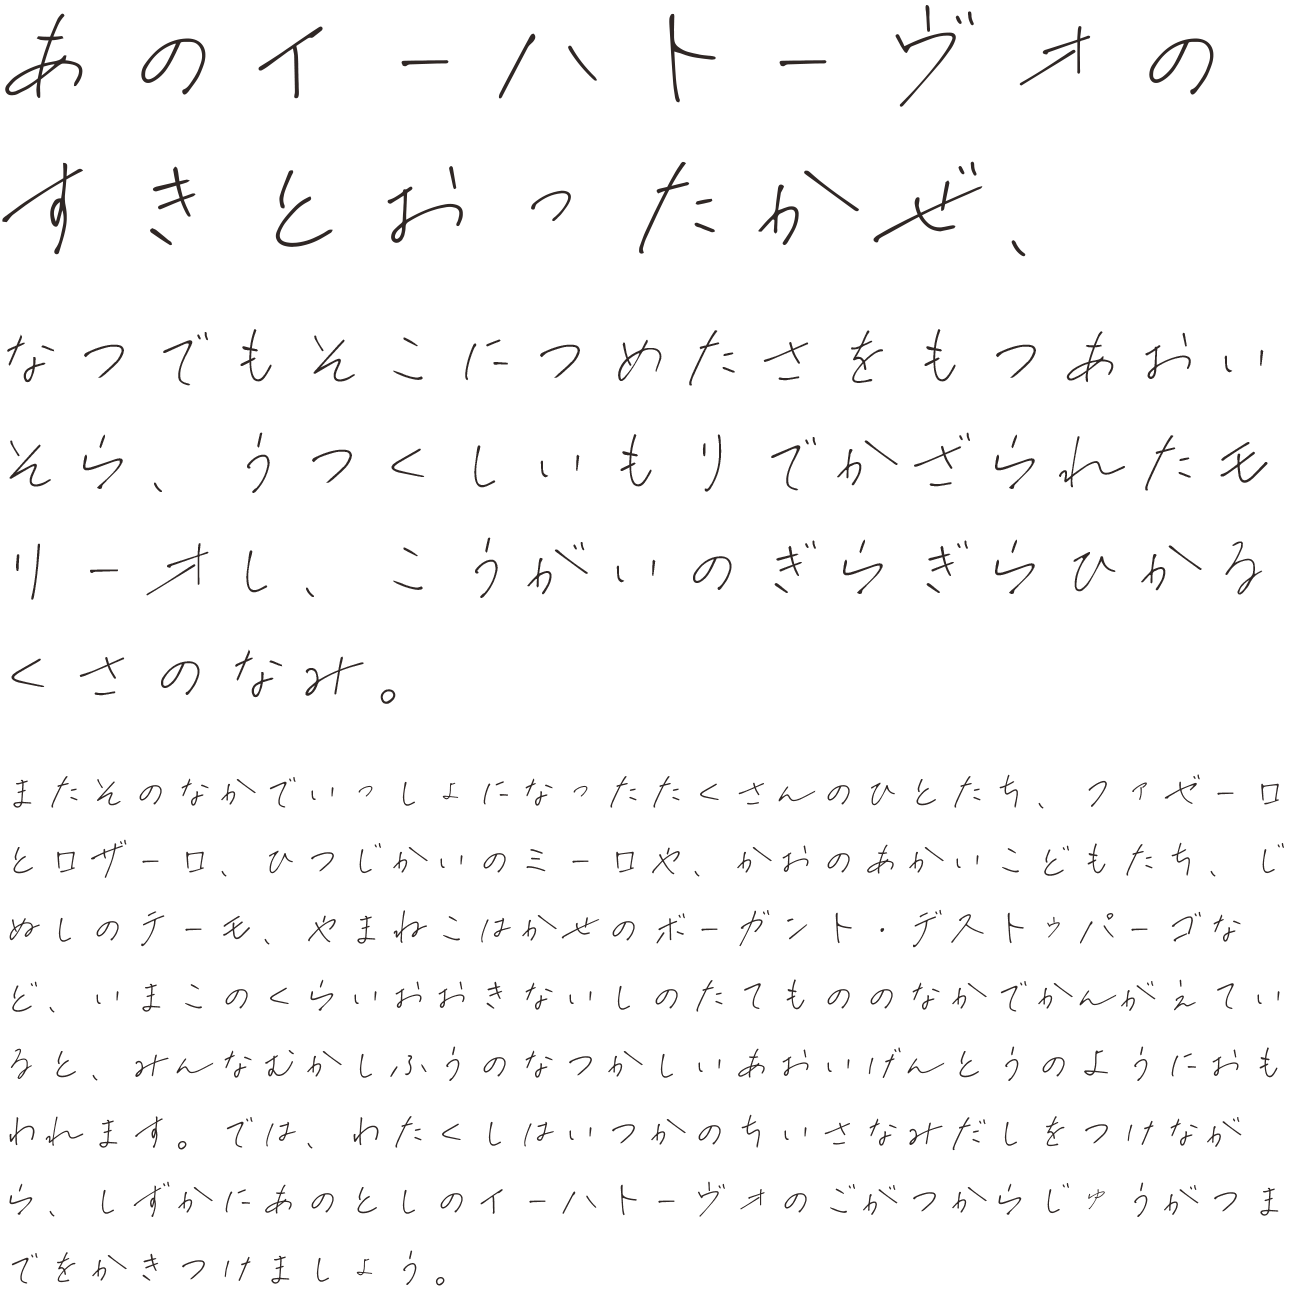 あのイーハトーヴォの
すきとおったかぜ、
なつでもそこにつめたさをもつあおい
そら、うつくしいもりでかざられたモ
リーオし、こうがいのぎらぎらひかる
くさのなみ。
またそのなかでいっしょになったたくさんのひとたち、ファゼーロ
とロザーロ、ひつじかいのミーロや、かおのあかいこどもたち、じ
ぬしのテーモ、やまねこはかせのボーガント・デストゥパーゴな
ど、いまこのくらいおおきないしのたてもののなかでかんがえてい
ると、みんなむかしふうのなつかしいあおいげんとうのようにおも
われます。では、わたくしはいつかのちいさなみだしをつけなが
ら、しずかにあのとしのイーハトーヴォのごがつからじゅうがつま
でをかきつけましょう。